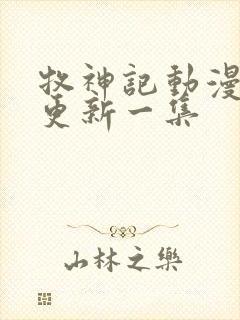 牧神記動漫
更新一集
山林之樂